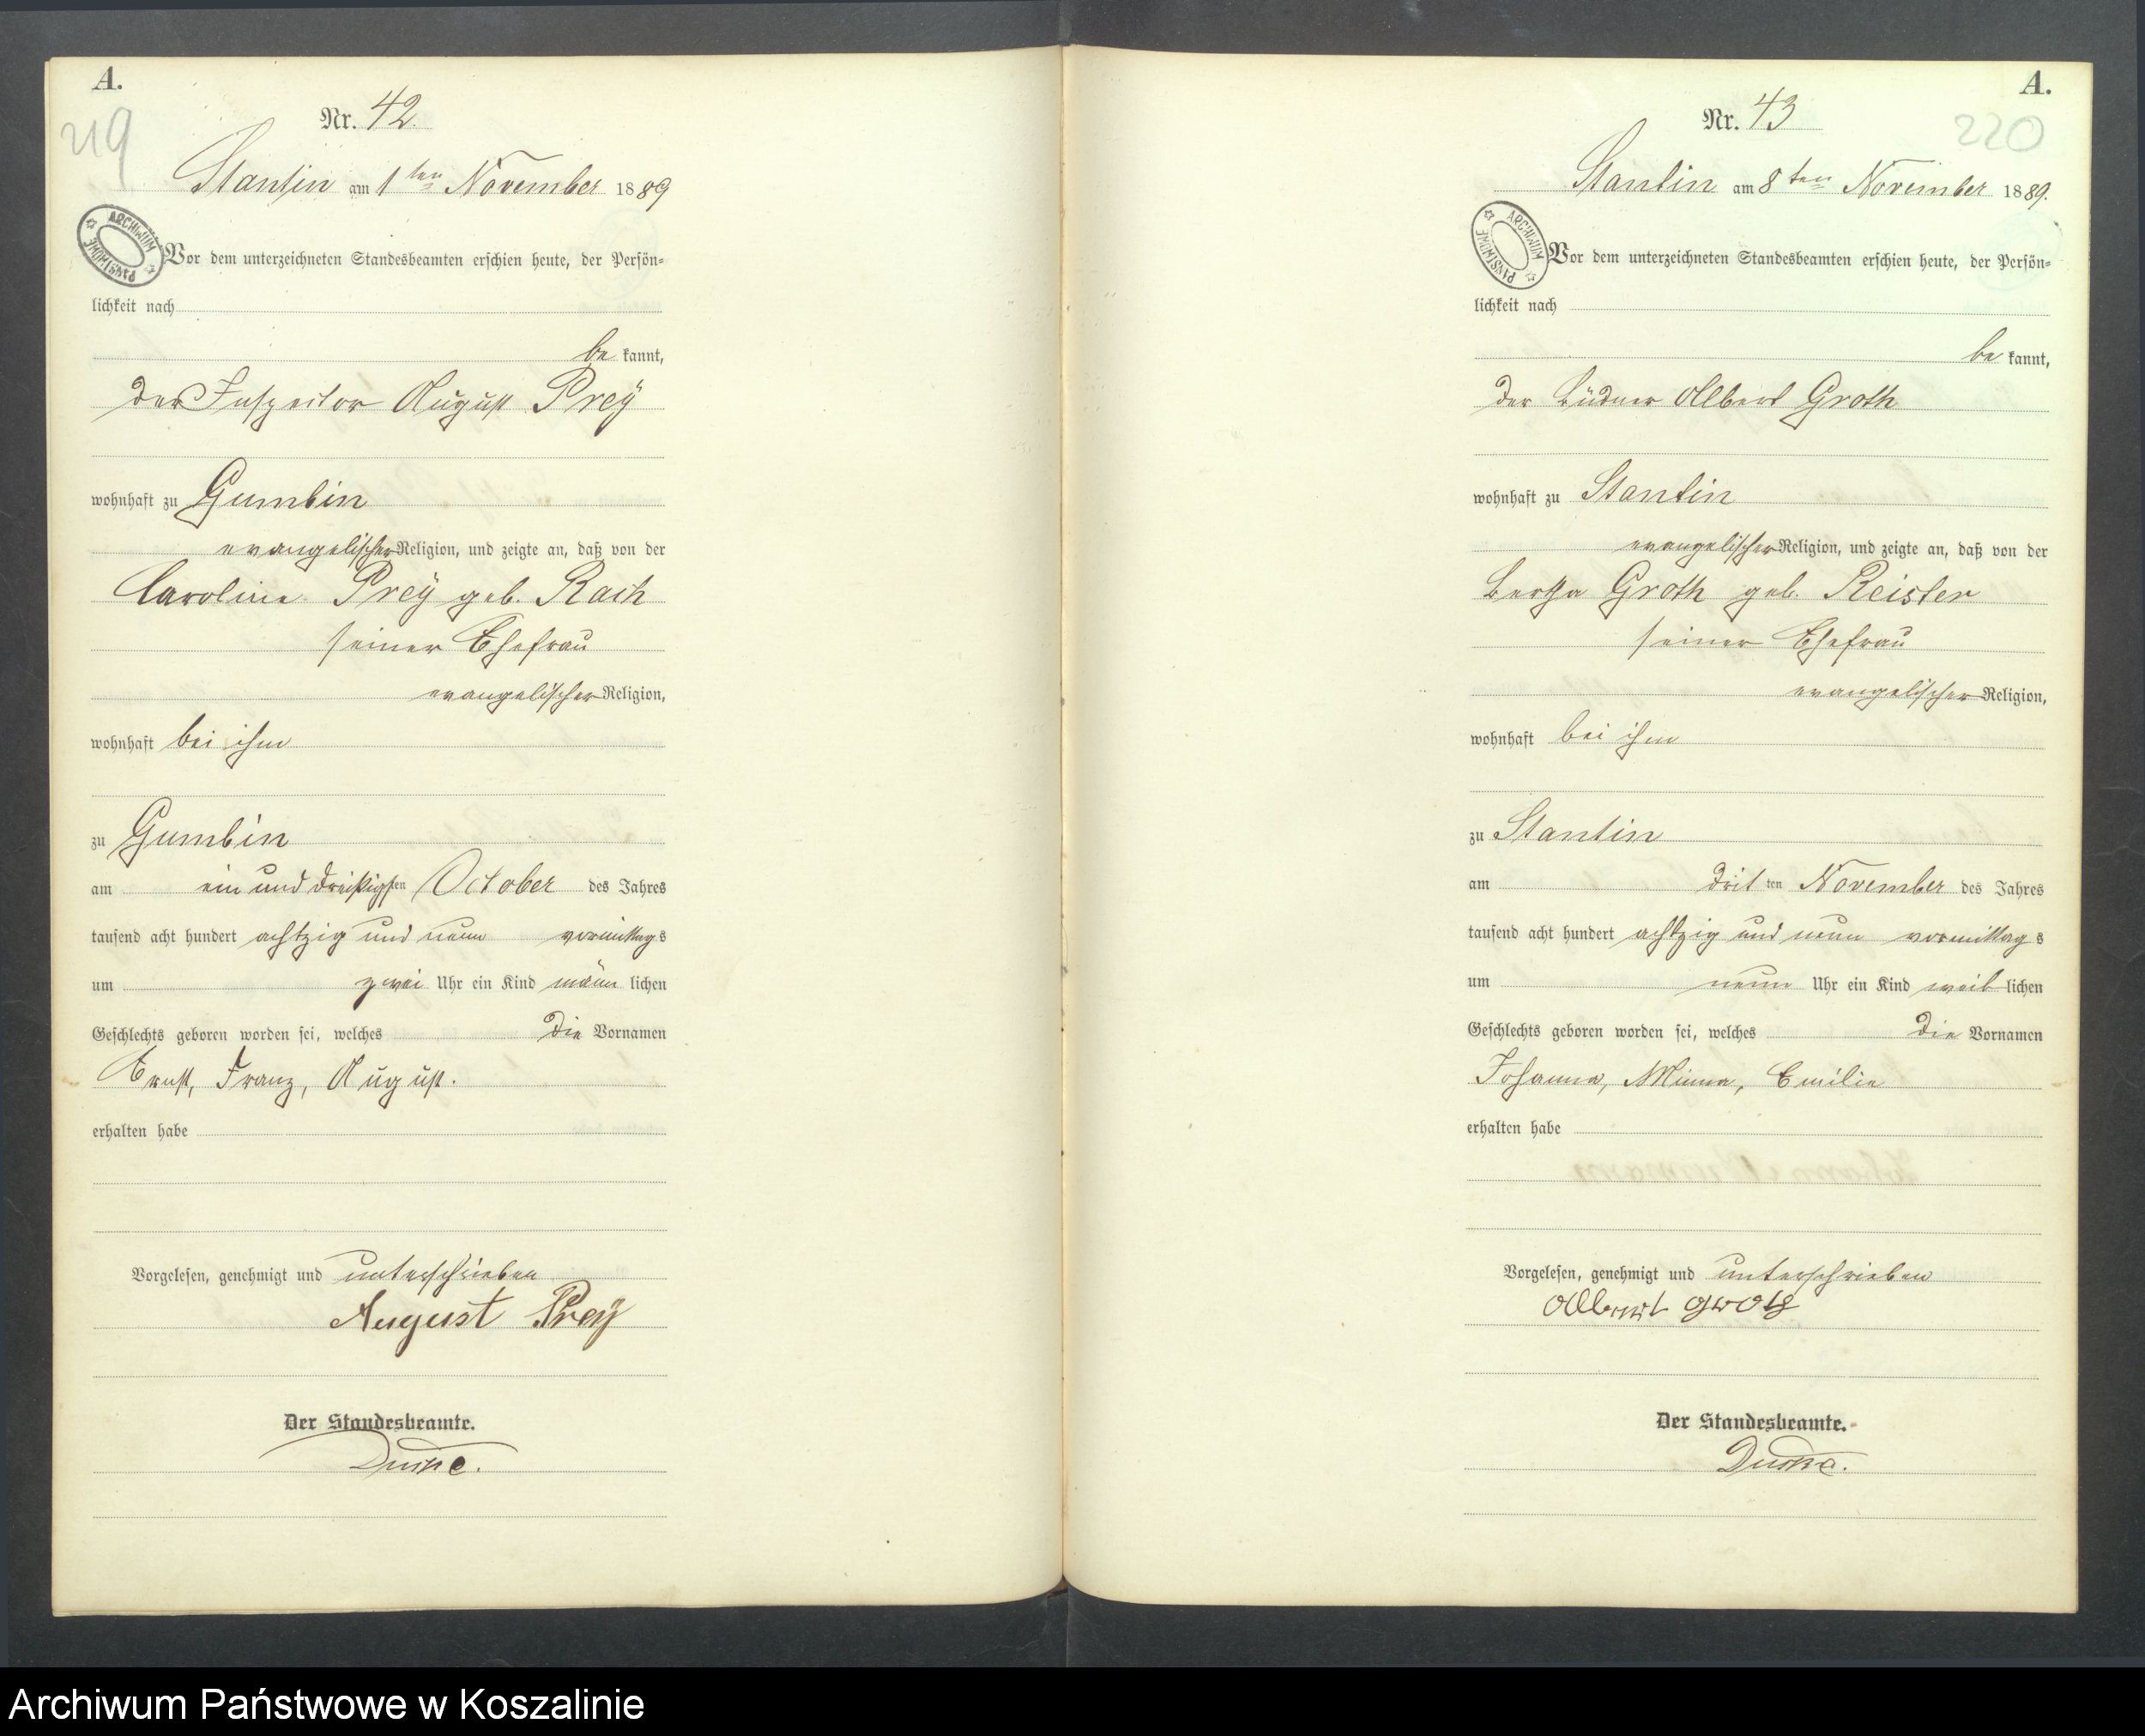 A.
219
Nr. 42.
Stantin am 1ten November 1889
ARCHIWUM PAŃSTWOWE
Vor dem unterzeichneten Standesbeamten erschien heute, der Persön-
lichkeit nach
be kannt,
der Inspector August Prey
wohnhaft zu Gumbin
evangelischer Religion, und zeigte an, daß von der
Caroline Prey geb. Rach
seiner Ehefrau
evangelischer Religion,
wohnhaft bei ihm
zu Gumbin
am ein und dreißigsten October des Jahres
tausend acht hundert achtzig und neun vormittags
um zwei Uhr ein Kind männ lichen
Geschlechts geboren worden sei, welches die Vornamen
Ernst, Franz, August.
erhalten habe
Vorgelesen, genehmigt und unterschrieben
August Prey
Der Standesbeamte.
A.
220
Nr. 43
Stantin am 8ten November 1889.
ARCHIWUM PAŃSTWOWE
Vor dem unterzeichneten Standesbeamten erschien heute, der Persön-
lichkeit nach
be kannt,
der Büdner Albert Groth
wohnhaft zu Stantin
evangelischer Religion, und zeigte an, daß von der
Bertha Groth geb. Reister
seiner Ehefrau
evangelischer Religion,
wohnhaft bei ihm
zu Stantin
am drit ten November des Jahres
tausend acht hundert achtzig und neun vormittag s
um neun Uhr ein Kind weib lichen
Geschlechts geboren worden sei, welches die Vornamen
Johanna, Minna, Emilie
erhalten habe
Vorgelesen, genehmigt und unterschrieben
Albert Groth
Der Standesbeamte.
Archiwum Państwowe w Koszalinie